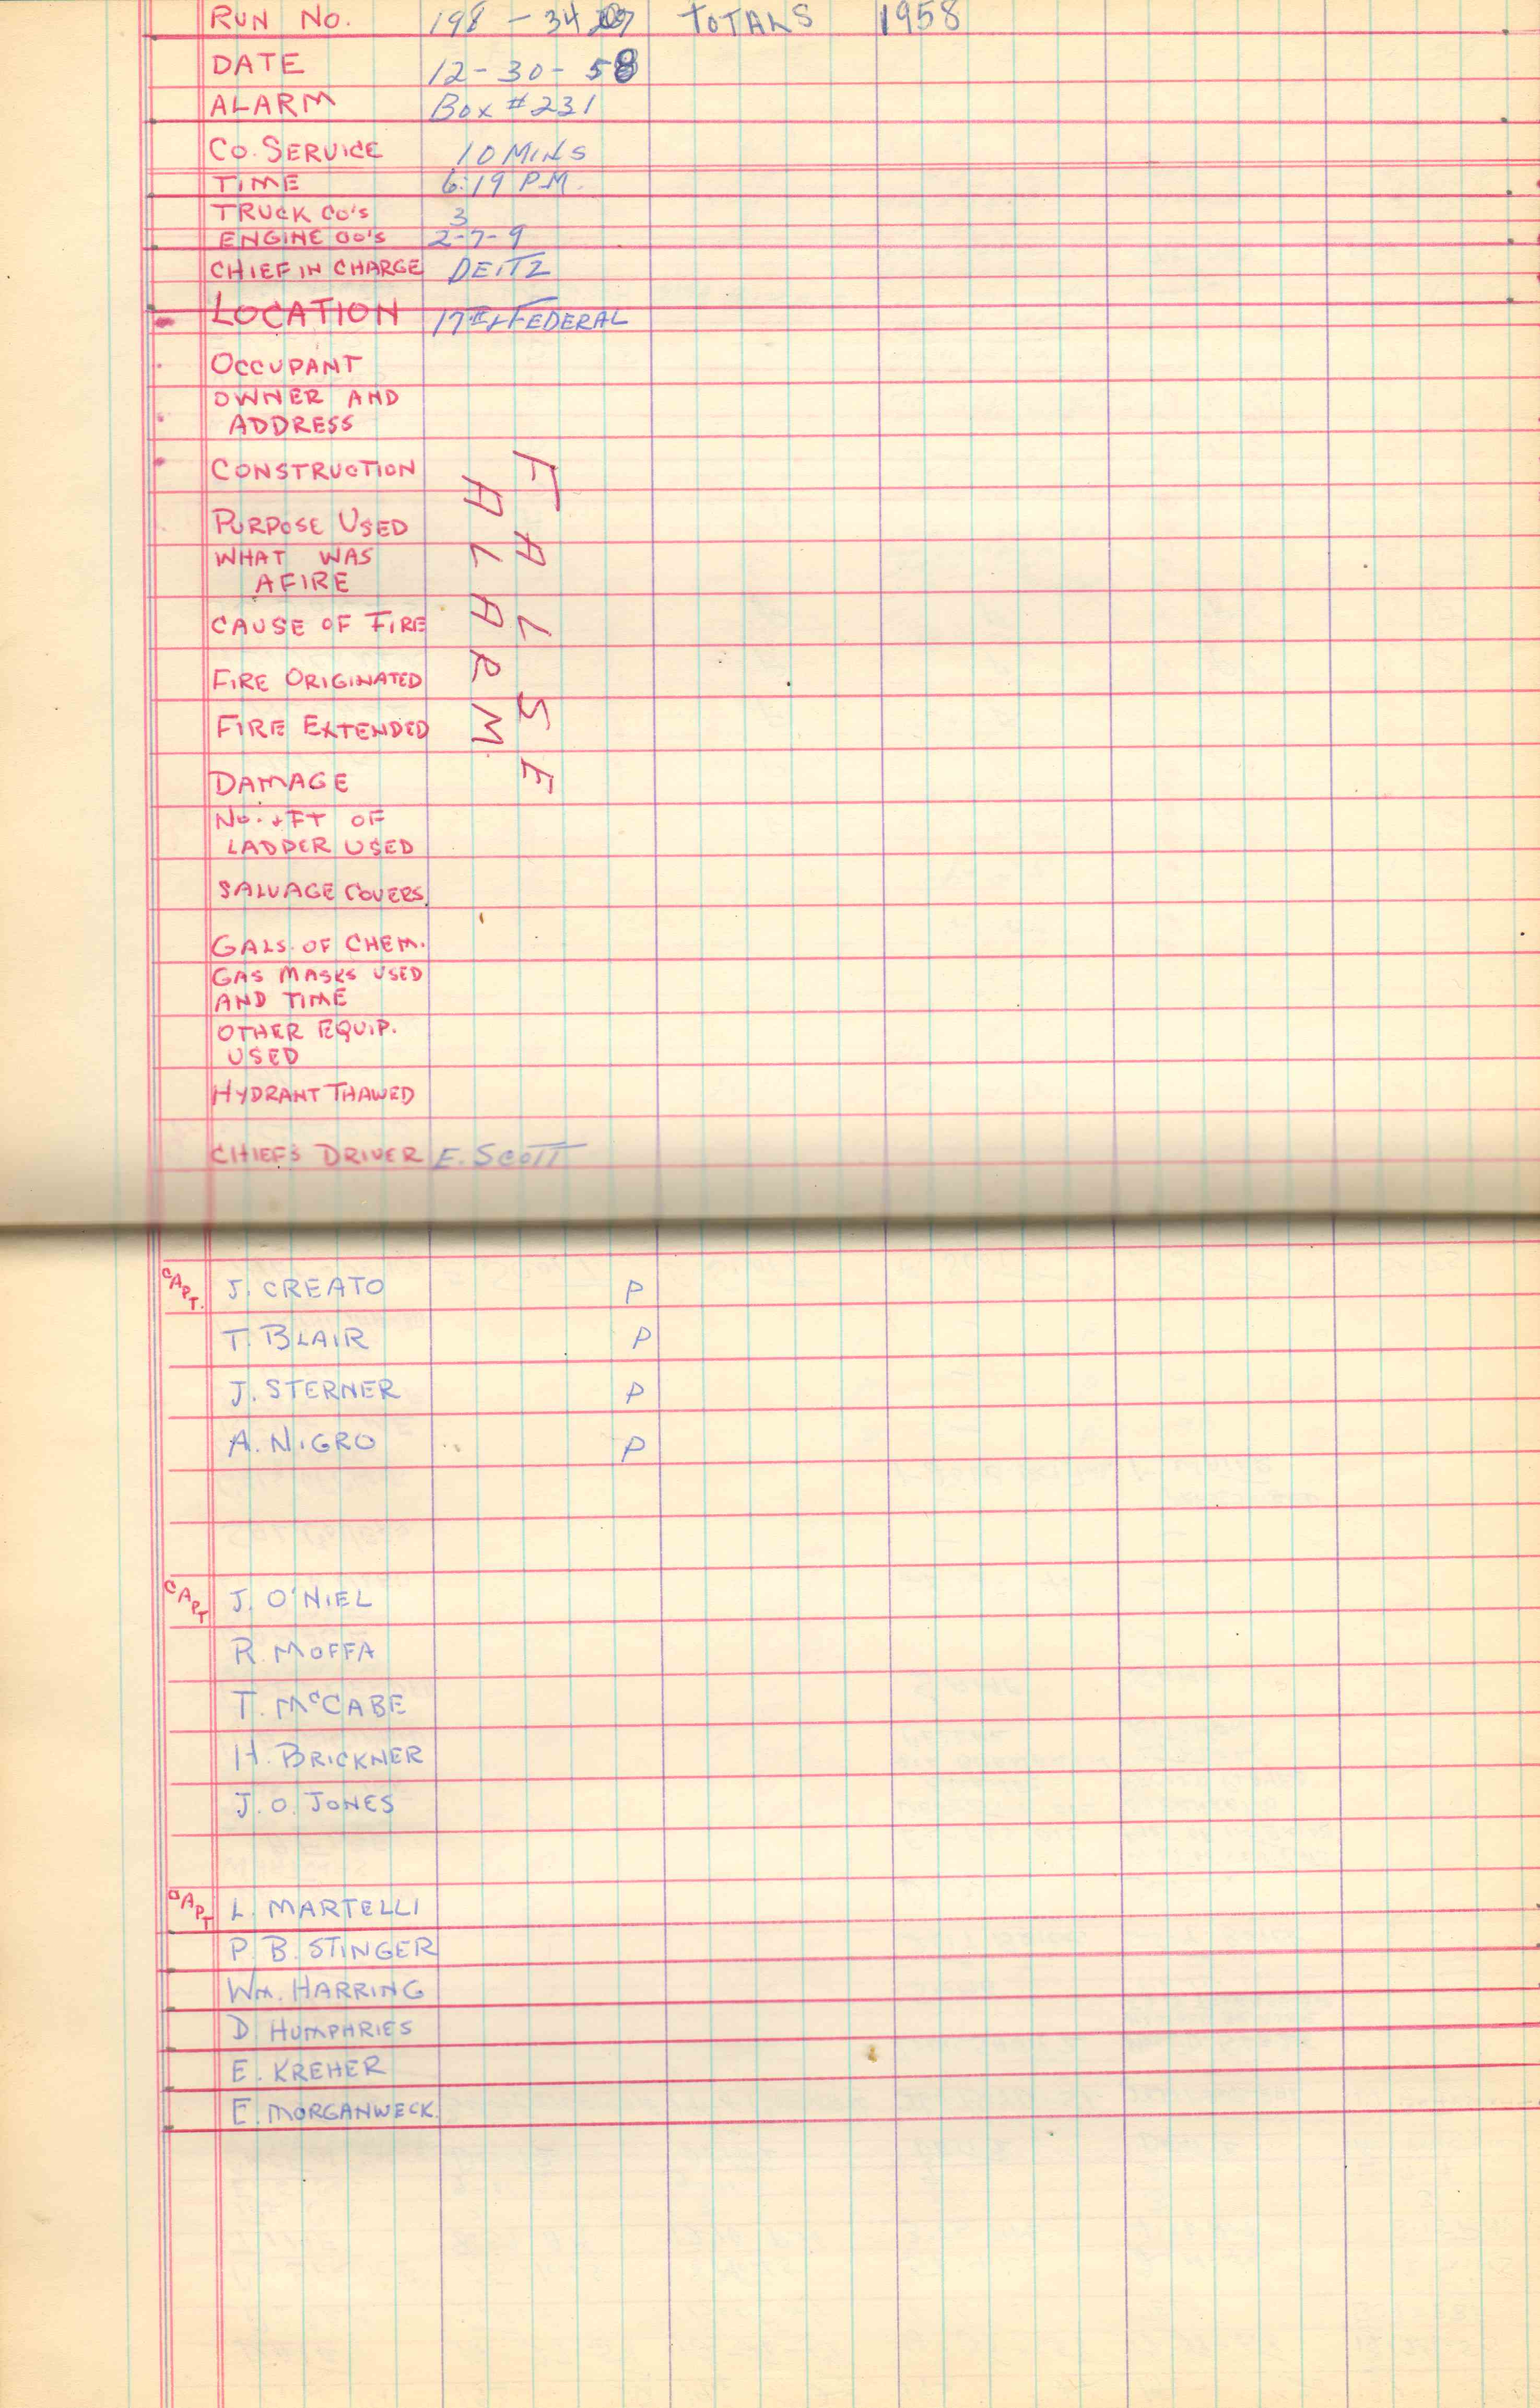 RUN NO. 198 - 34 TOTALS 1958
DATE 12-30-58
ALARM Box #231
CO. SERVICE 10 MINS
TIME 6:19 P.M.
TRUCK CO'S 3
ENGINE CO'S 2-7-9
CHIEF IN CHARGE DEITZ
LOCATION 17TH + FEDERAL
OCCUPANT
OWNER AND
ADDRESS
CONSTRUCTION
PURPOSE USED
WHAT WAS
AFIRE
CAUSE OF FIRE
FIRE ORIGINATED
FIRE EXTENDED
DAMAGE
NO. + FT OF
LADDER USED
SALVAGE COVERS
GALS. OF CHEM.
GAS MASKS USED
AND TIME
OTHER EQUIP.
USED
HYDRANT THAWED
FALSE
ALARM
CHIEF'S DRIVER E. SCOTT
CAPT. J. CREATO P
T. BLAIR P
J. STERNER P
A. NIGRO P
CAPT J. O'NIEL
R. MOFFA
T. McCABE
H. BRICKNER
J. O. JONES
CAPT L. MARTELLI
P. B. STINGER
WM. HARRING
D HUMPHRIES
E. KREHER
E. MORGANWECK.